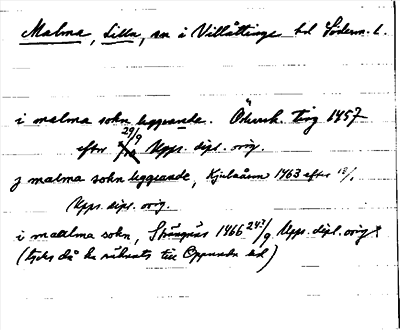 Malma, Lilla, sn i Villåttinge hd Söderm. l.
i malma sokn liggiande. Ödeursk. ting 1457
efter 29/9 Upps. dipl. orig.
j malma sokn liggiande, 1463 efter 18/1
Upps. dipl. orig.
i malma sokn, Strängnäs 1466 24?/9 Upps. dipl. orig.
(tycks då ha räknats till Oppunda hd)